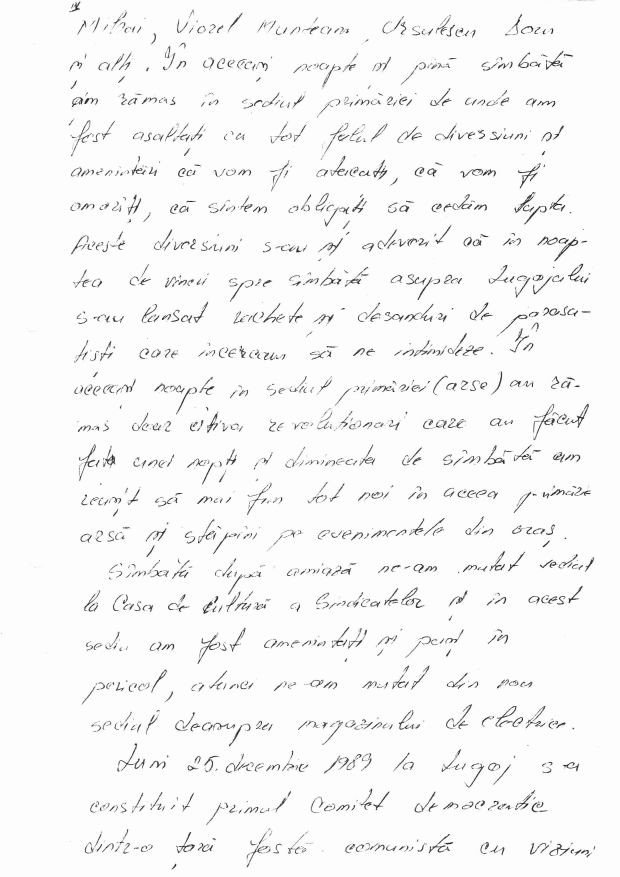 Mihai, Viorel Muntean, Ursulescu Doru
și alții. În aceeași noapte și pînă sîmbătă
am rămas în sediul primăriei de unde am
fost asaltați cu tot felul de diversiuni și
amenințări că vom fi atacați, că vom fi
omorîți, că sîntem obligați să cedăm lupta.
Aceste diversiuni s-au și adeverit că în noap-
tea de vineri spre sîmbătă asupra Lugojului
s-au lansat rachete și desanduri de parașu-
tiști care încercau să ne intimideze. În
aceeași noapte în sediul primăriei (arse) au ră-
mas doar cîțiva revoluționari care au făcut
față unei nopți și dimineața de sîmbătă am
reușit să mai fim tot noi în aceea primărie
arsă și stăpîni pe evenimentele din oraș.
Sîmbătă după amiază ne-am mutat sediul
la Casa de Cultură a Sindicatelor și în acest
sediu am fost amenințați și puși în
pericol, atunci ne-am mutat din nou
sediul deasupra magazinului de electrice.
Luni 25. decembrie 1989 la Lugoj s-a
constituit primul Comitet democratic
dintr-o țară fostă comunistă cu viziuni